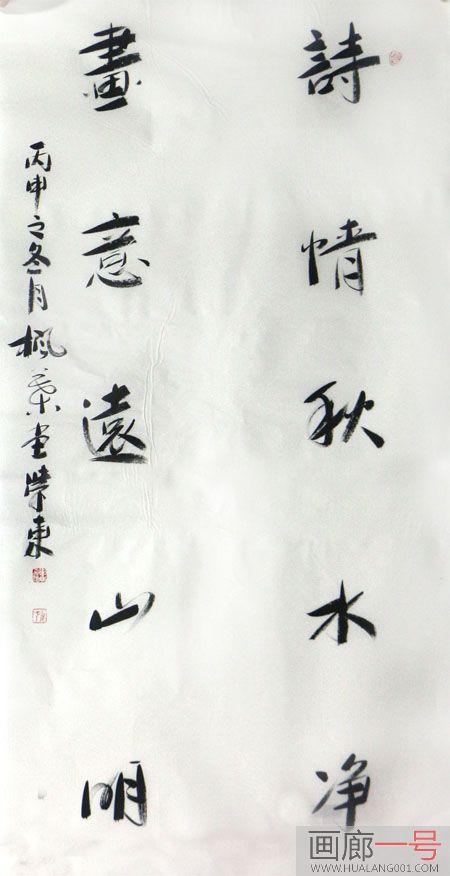 詩情秋水净
畫意遠山明
丙申之冬月楓葉堂學東
画廊一号
WWW.HUALANG001.COM